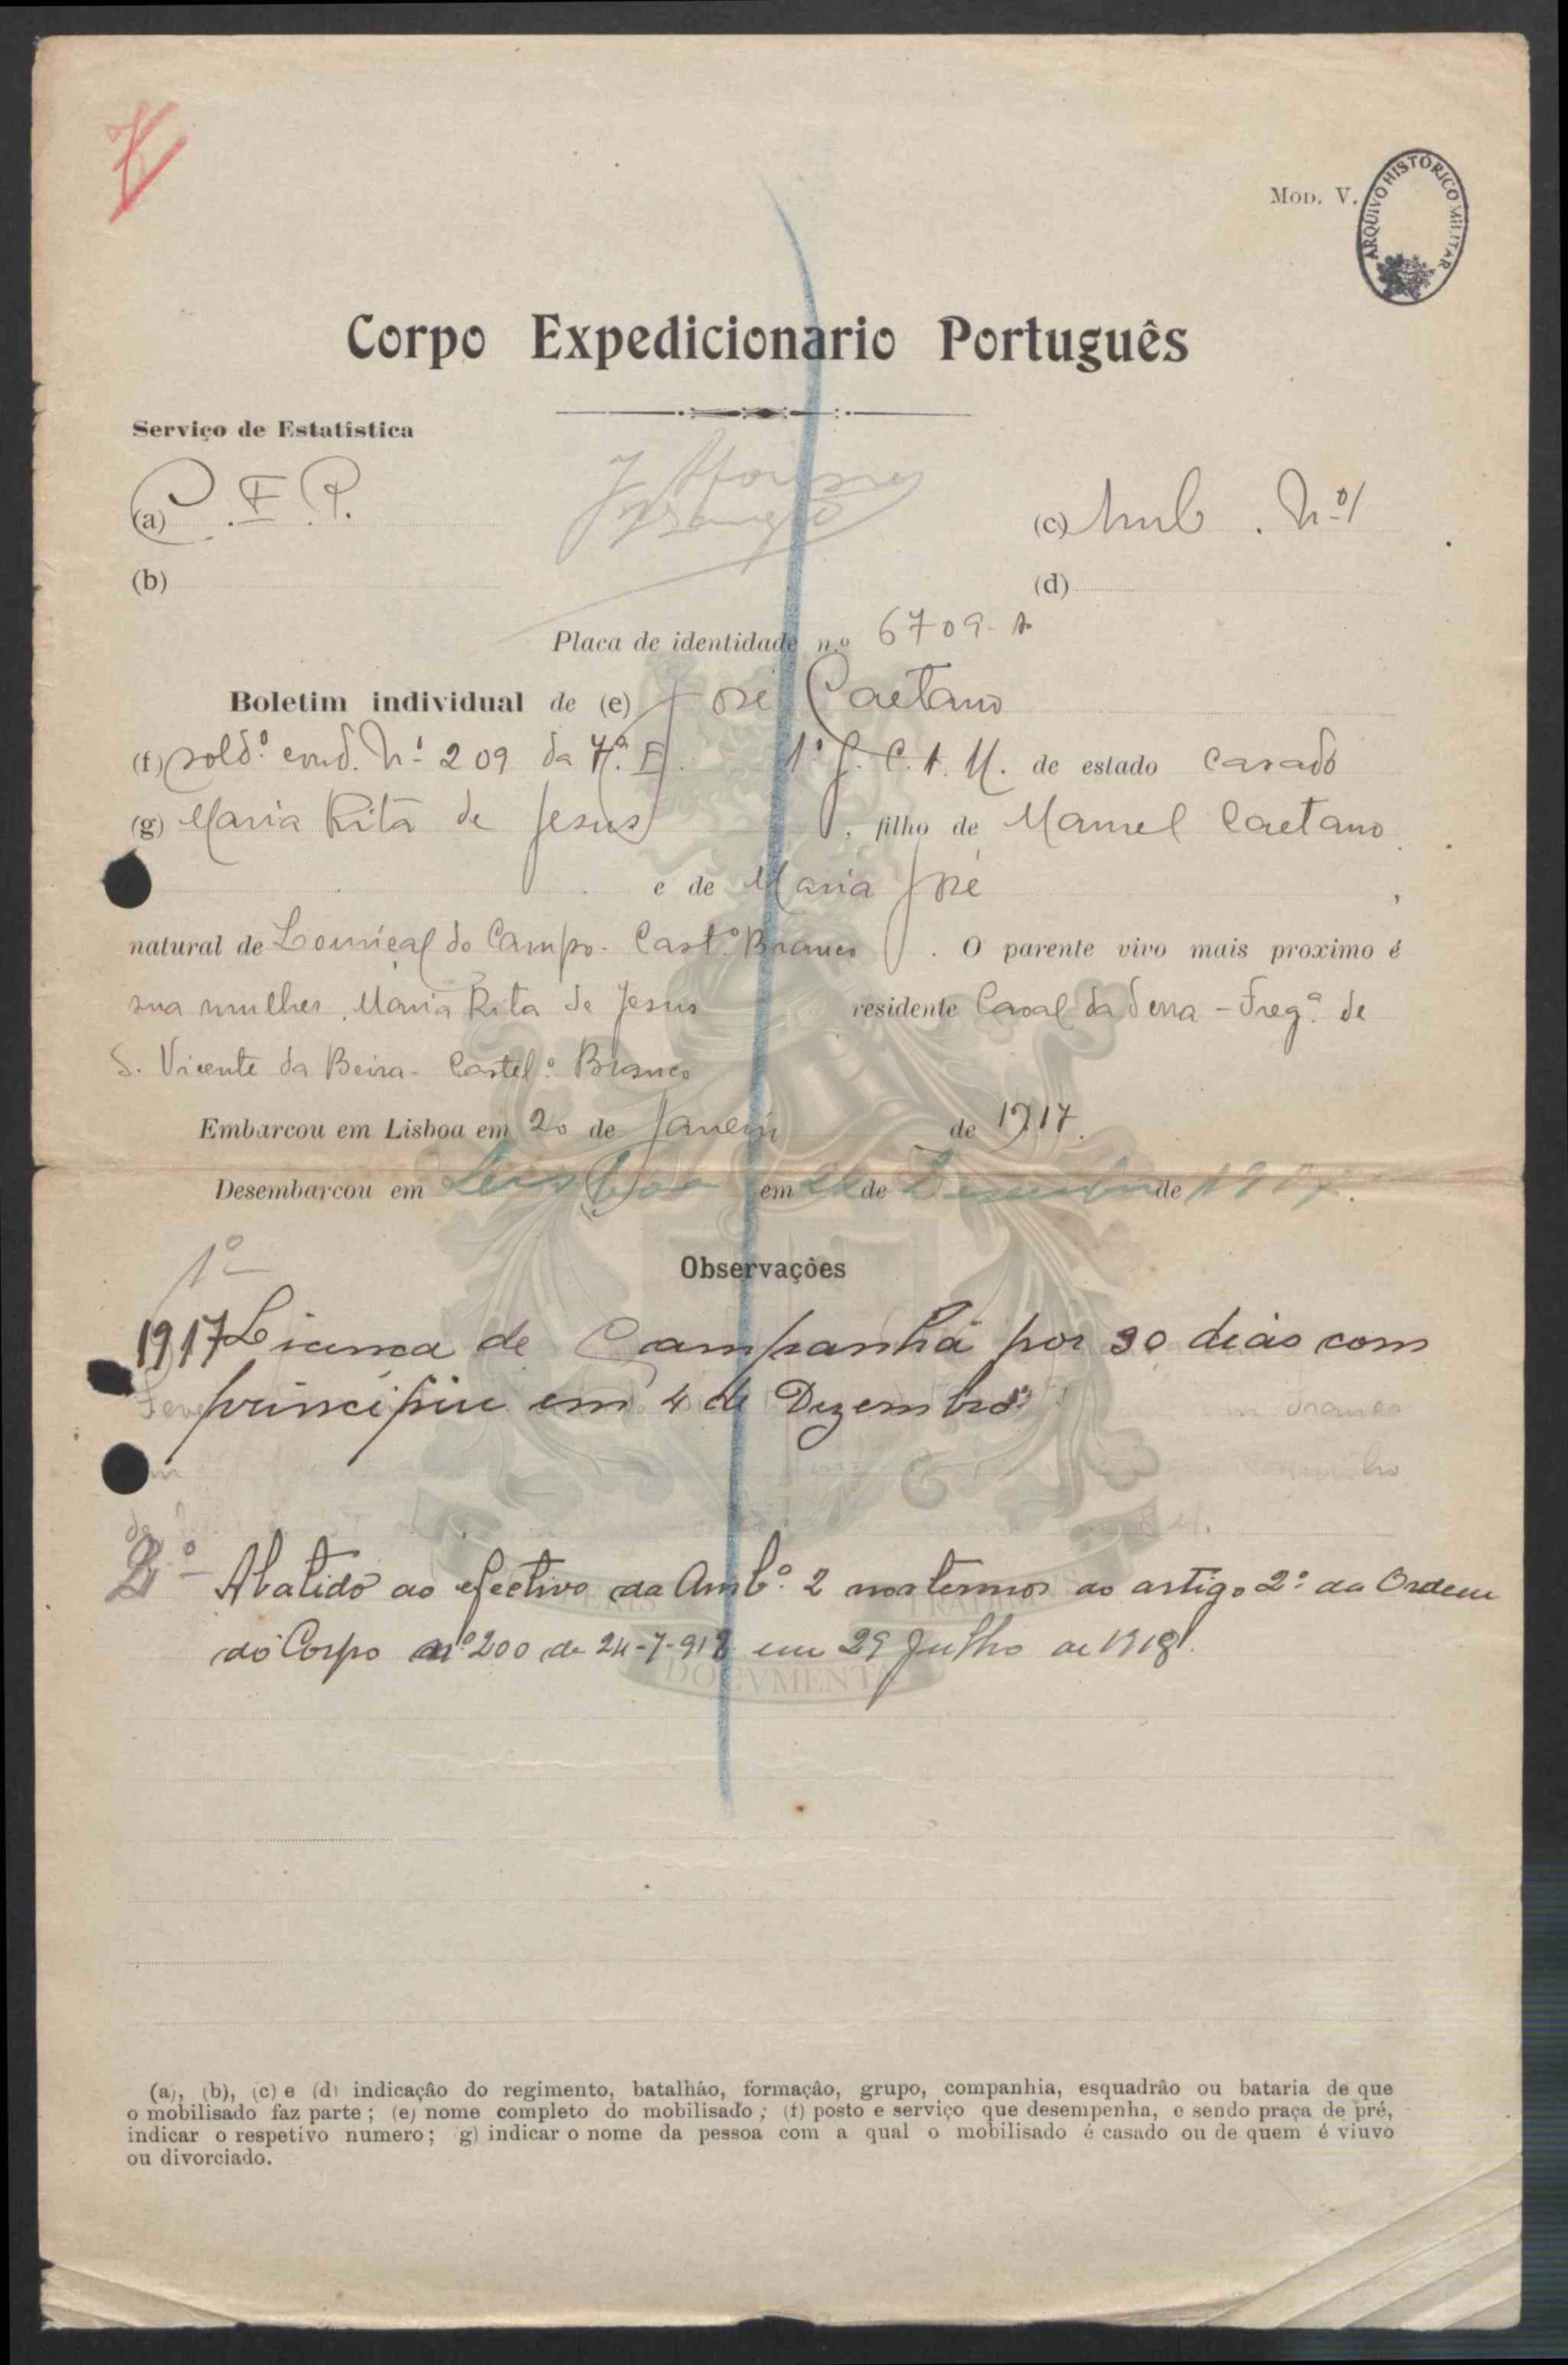 Mod. V.
ARQUIVO HISTÓRICO MILITAR
Corpo Expedicionario Português
Serviço de Estatística
(a) C. E. P.
(c) Amb. Nº 1
(b)
(d)
Placa de identidade n.º 6709-A
Boletim individual de (e) José Caetano
(f) sold.º cond. Nº 209 da 7ª. E. 1º G. C. A. M. de estado casado
(g) Maria Rita de Jesus, filho de Manuel Caetano
e de Maria José,
natural de Louriçal do Campo - Cast.º Branco. O parente vivo mais proximo é
sua mulher, Maria Rita de Jesus residente Casal da Serra - Freg.ª de
S. Vicente da Beira - Castel.º Branco
Embarcou em Lisboa em 20 de Janeiro de 1917.
Desembarcou em Lisboa em de Dezembro de 1917.
Observações
1º
1917 Licença de Campanha por 30 dias com
principio em 4 de Dezembro
2º Abatido ao efectivo da Amb.º 2 nos termos do artigo 2º da Ordem
do Corpo nº 200 de 24-7-918 em 29 Julho de 1918.
DOCVMENTA
(a), (b), (c) e (d) indicação do regimento, batalhão, formação, grupo, companhia, esquadrão ou bataria de que
o mobilisado faz parte; (e) nome completo do mobilisado; (f) posto e serviço que desempenha, e sendo praça de pré,
indicar o respetivo numero; g) indicar o nome da pessoa com a qual o mobilisado é casado ou de quem é viuvo
ou divorciado.